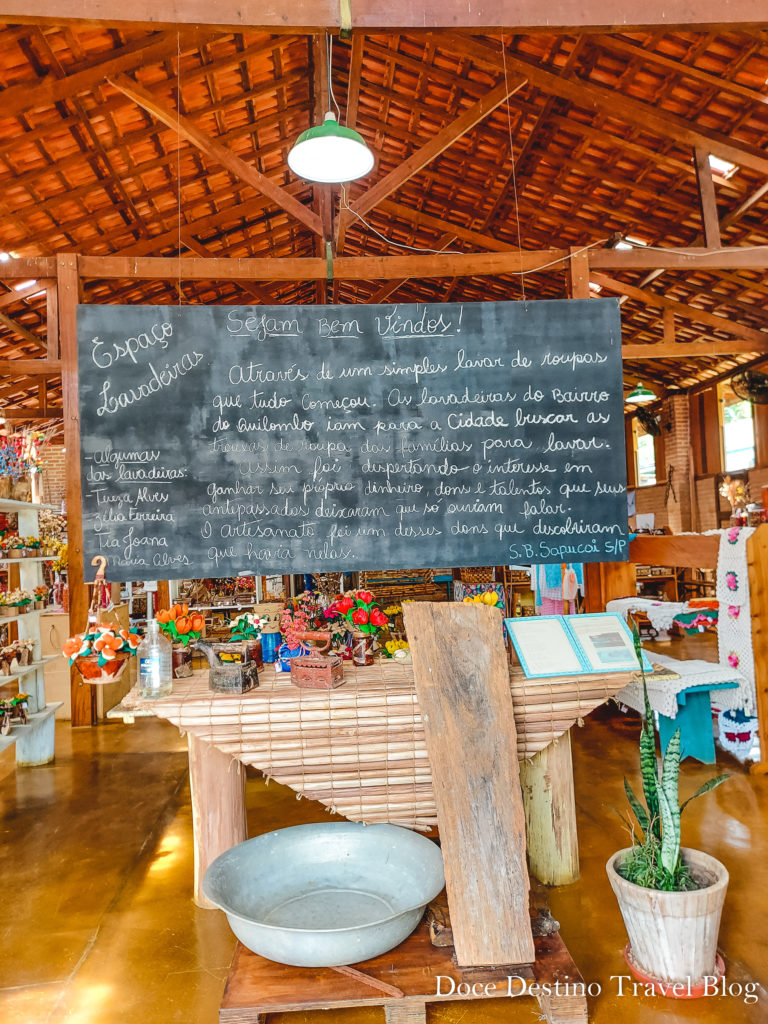 Espaço
Lavadeiras
Sejam Bem Vindos!
Através de um simples lavar de roupas
que tudo começou. As lavadeiras do Bairro
do Quilombo iam para a Cidade buscar as
trouxas de roupa das famílias para lavar.
Assim foi despertando o interesse em
ganhar seu próprio dinheiro, dons e talentos que seus
antepassados deixaram que só ouviam falar.
O artesanato foi um desses dons que descobriram
que havia nelas.
- Algumas
das lavadeiras:
- Tuega Alves
Zélia Ferreira
Tia Joana
Alves
S.B. Sapucaí S/P
Doce Destino Travel Blog